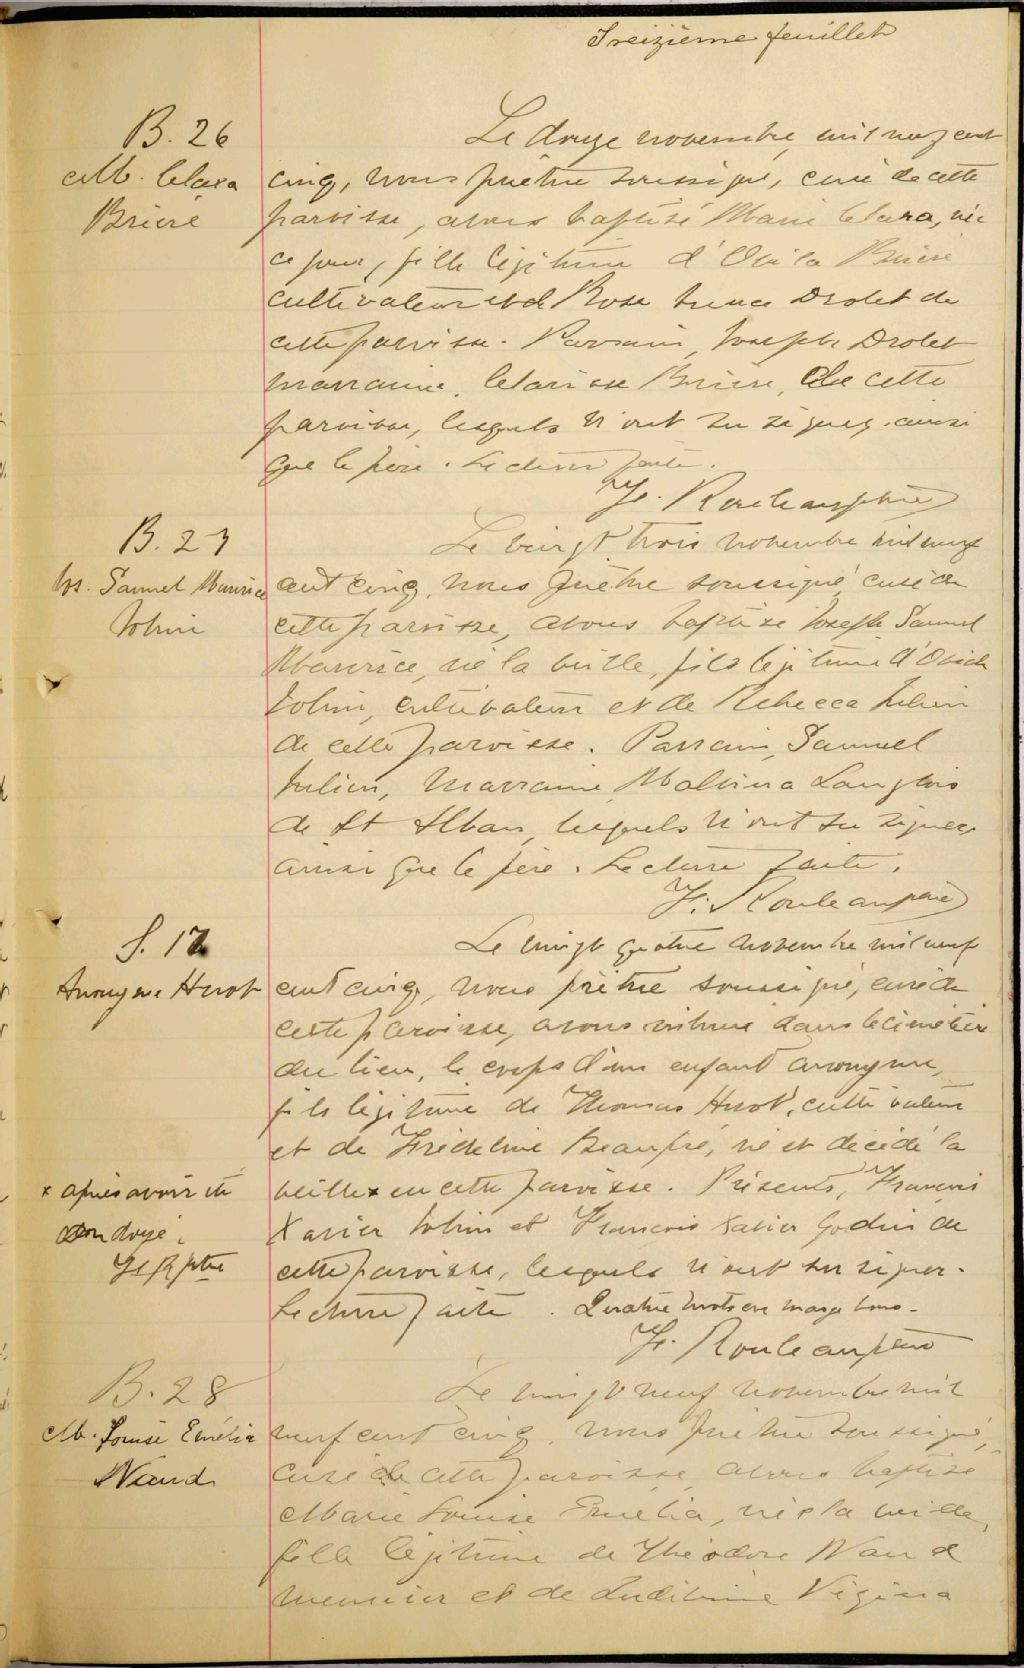 Treizième feuillet
B. 26
M. Clara
Brière
Le douze novembre mil neuf cent
cinq, nous prêtre soussigné, curé de cette
paroisse, avons baptisé Marie Clara, née
ce jour, fille légitime d'Ovila Brière
cultivateur et de Rose Drolet de
cette paroisse. Parrain, Joseph Drolet
marraine, Clarisse Brière, de cette
paroisse, lesquels n'ont su signer ainsi
que le père. Lecture faite.
F. Rouleau ptre
B. 27
Jos. Samuel Maurice
Tobin
Le vingt trois novembre mil neuf
cent cinq, nous prêtre soussigné, curé de
cette paroisse, avons baptisé Joseph Samuel
Maurice, né la veille, fils légitime d'Ovide
Tobin, cultivateur et de Rebecca Julien
de cette paroisse. Parrain, Samuel
Julien, marraine Malvina Langlois
de St Alban, lesquels n'ont su signer
ainsi que le père. Lecture faite.
F. Rouleau ptre
S. 17
Anonyme Huot
Le vingt quatre novembre mil neuf
cent cinq, nous prêtre soussigné, curé de
cette paroisse, avons inhumé dans le cimetière
du lieu, le corps d'un enfant anonyme,
fils légitime de Thomas Huot, cultivateur
et de Frédeline Beaupré, né et décédé la
veille x en cette paroisse. Présents, François
x après avoir été
ondoyé.
F R ptre
Xavier Tobin et François Xavier Godin de
cette paroisse, lesquels n'ont su signer.
Lecture faite. Quatre mots en marge bons.
F. Rouleau ptre
B. 28
M. Louise Emélia
Naud
Le vingt neuf novembre mil
neuf cent cinq, nous prêtre soussigné,
curé de cette paroisse avons baptisé
Marie Louise Emélia, née la veille,
fille légitime de Théodore Naud
meunier et de Vézina